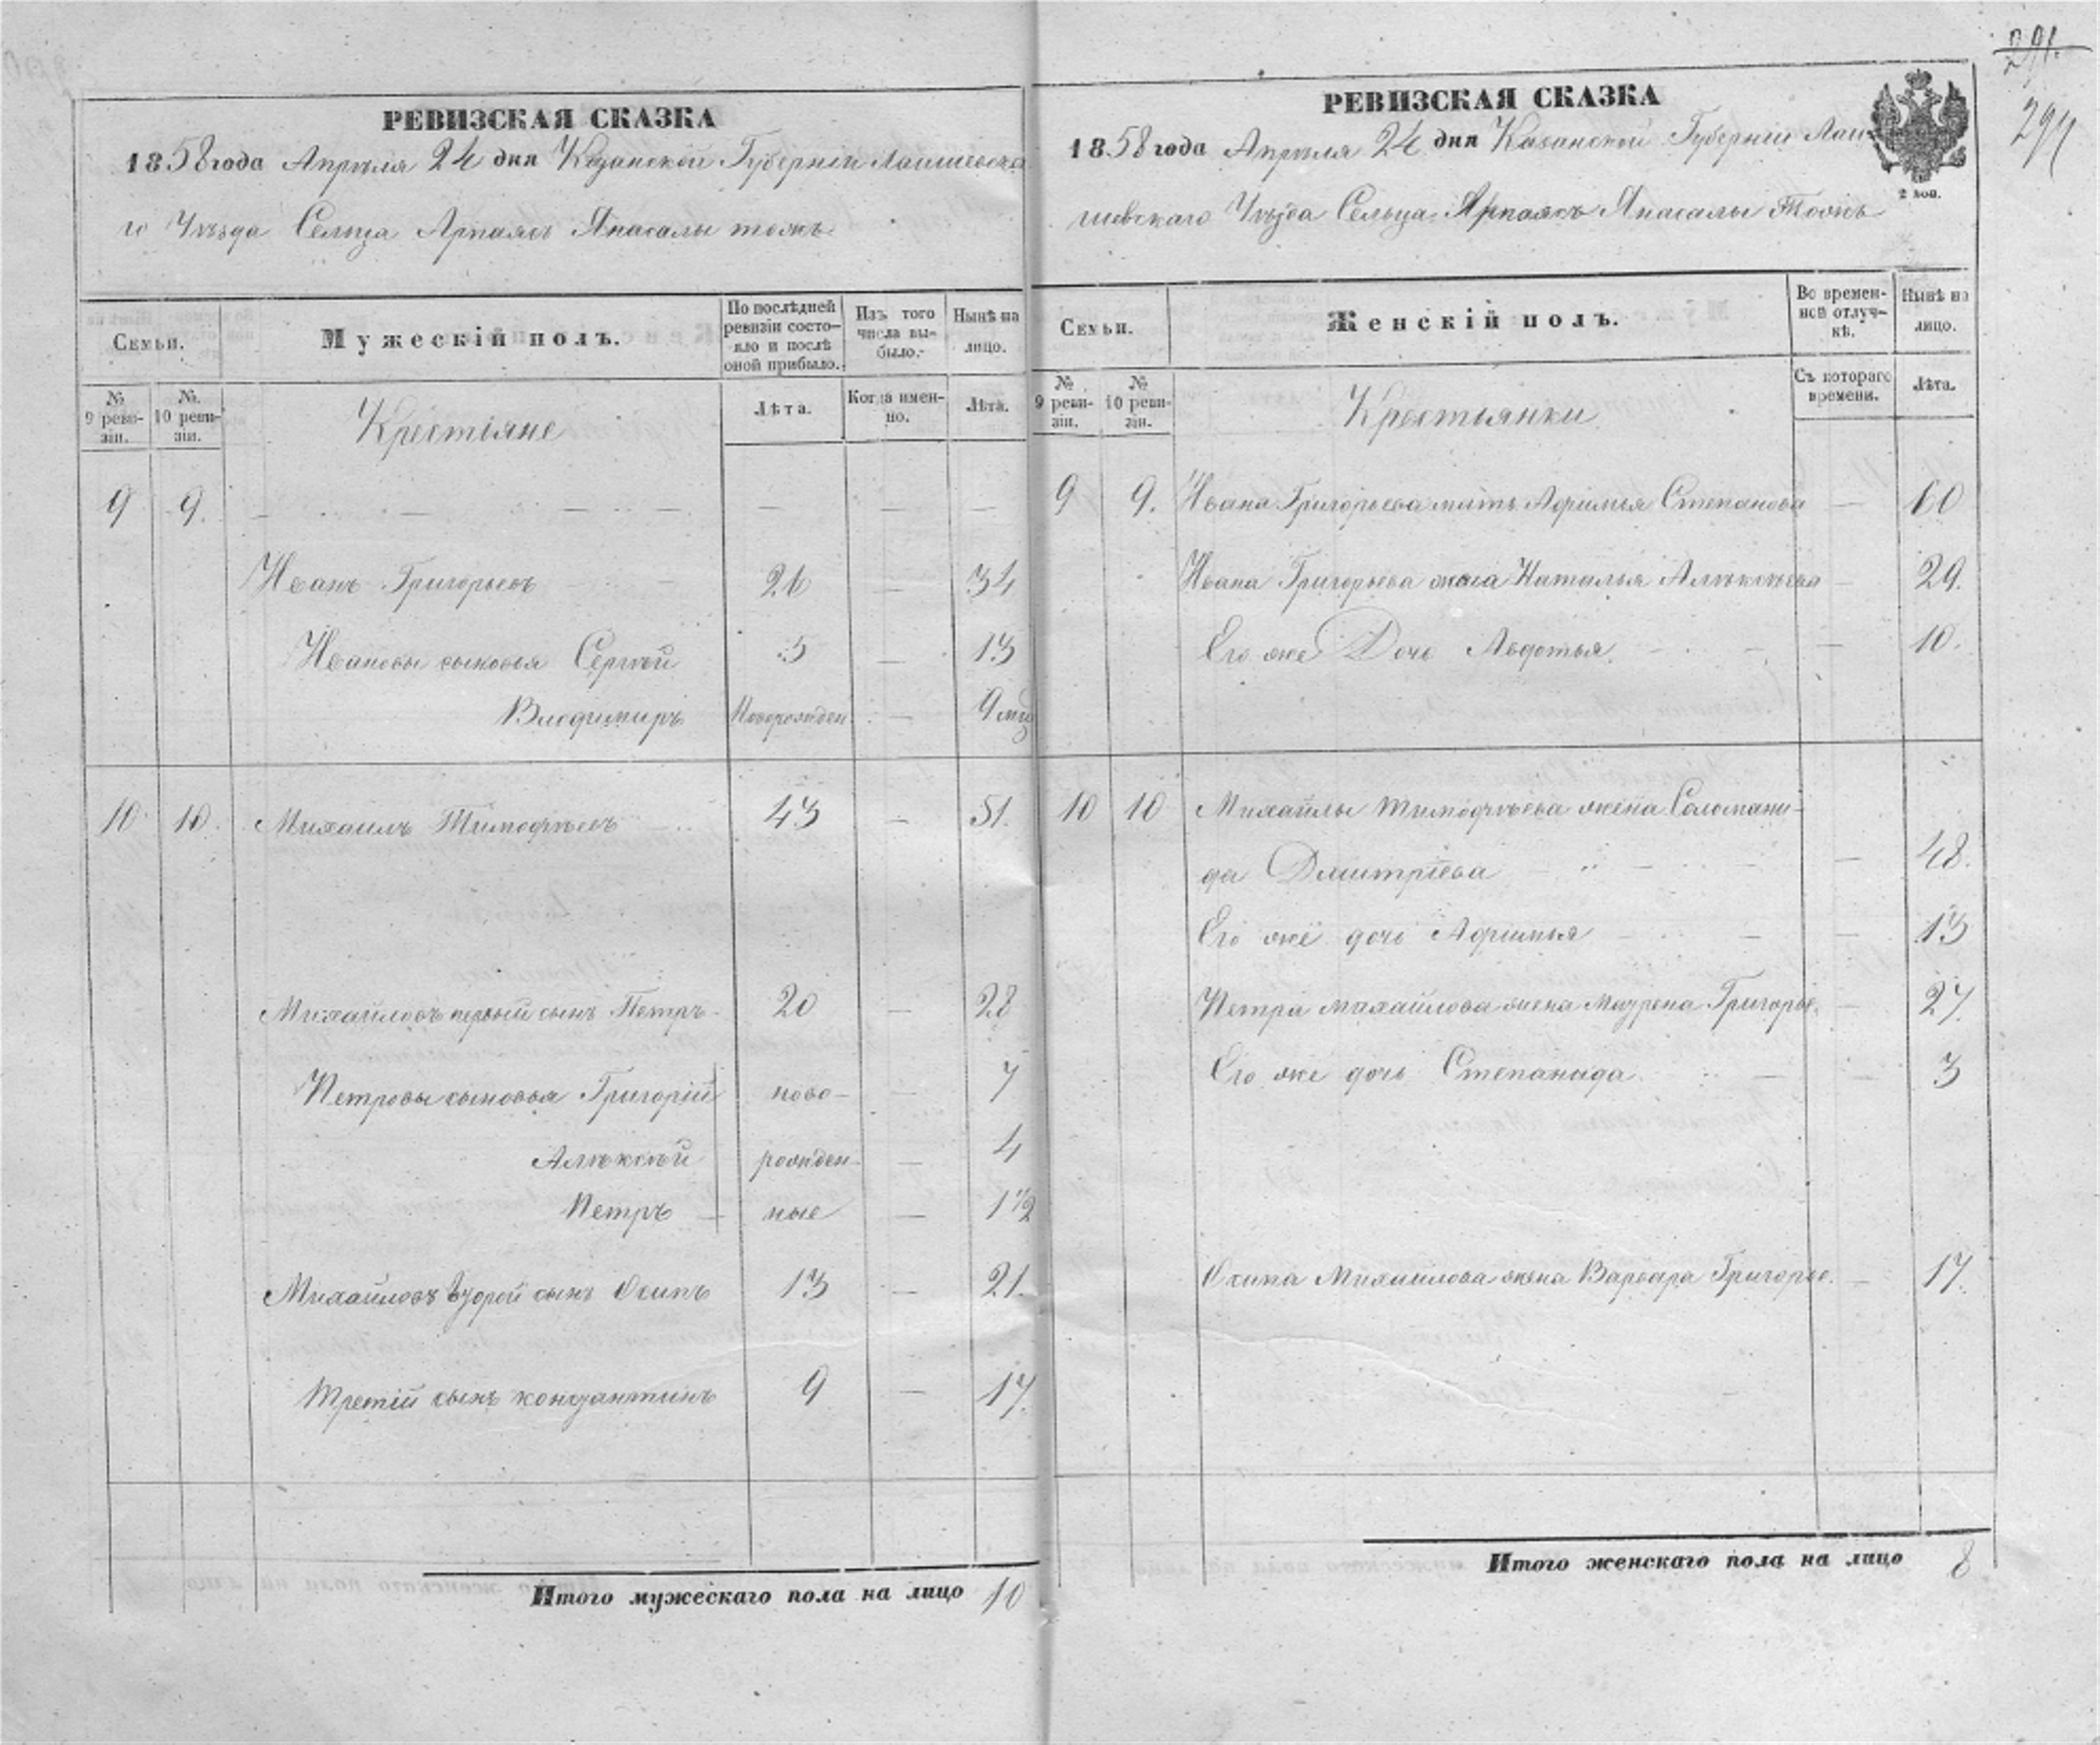 291.
294
РЕВИЗСКАЯ СКАЗКА
1858 года Апрѣля 24 дня Казанской Губерніи Лаишевска
го Уѣзда Сельца Арпаясъ Янасалы тожъ
Семьи.
Мужескій полъ.
По послѣдней ревизіи состояло и послѣ оной прибыло.
Изъ того числа выбыло.
Нынѣ на лицо.
№ 9 ревизіи.
№ 10 ревизіи.
Крестіяне
Лѣта.
Когда именно.
Лѣта.
9 9. — — — —
Иванъ Григорьевъ 26 — 34
Ивановы сыновья Сергѣй 5 — 13
Владимиръ Новорожден — 9 мц
10 10. Михаилъ Тимофѣевъ 43 — 51.
Михайловъ первый сынъ Петръ 20 — 28
Петровы сыновья Григорій ново- — 7
Алѣксѣй рожден- — 4
Петръ — ные — 1 1/2
Михайловъ второй сынъ Осипъ 13 — 21.
Третій сынъ константинъ 9 — 17.
Итого мужескаго пола на лицо 10
РЕВИЗСКАЯ СКАЗКА
1858 года Апрѣля 24 дня Казанской Губерніи Лаи-
шевскаго Уѣзда Сельца Арпаясъ Янасалы Тожъ
2 коп.
Семьи.
Женскій полъ.
Во временной отлучкѣ.
Нынѣ на лицо.
№ 9 ревизіи.
№ 10 ревизіи.
Крестьянки
Съ котораго времени.
Лѣта.
9 9. Ивана Григорьева мать Афимья Степанова — 60
Ивана Григорьева жена Наталья Алѣксѣева — 29.
Его же Дочь Авдотья — 10.
10 10 Михайлы Тимофѣева жена Соломани-
да Дмитріева — 48.
Его же дочь Афимья — 13
Петра михайлова жена Маѵрена Григорье. — 27.
Его же дочь Степанида — 3
Осипа Михайлова жена Варвара Григорье. — 17.
Итого женскаго пола на лицо 8